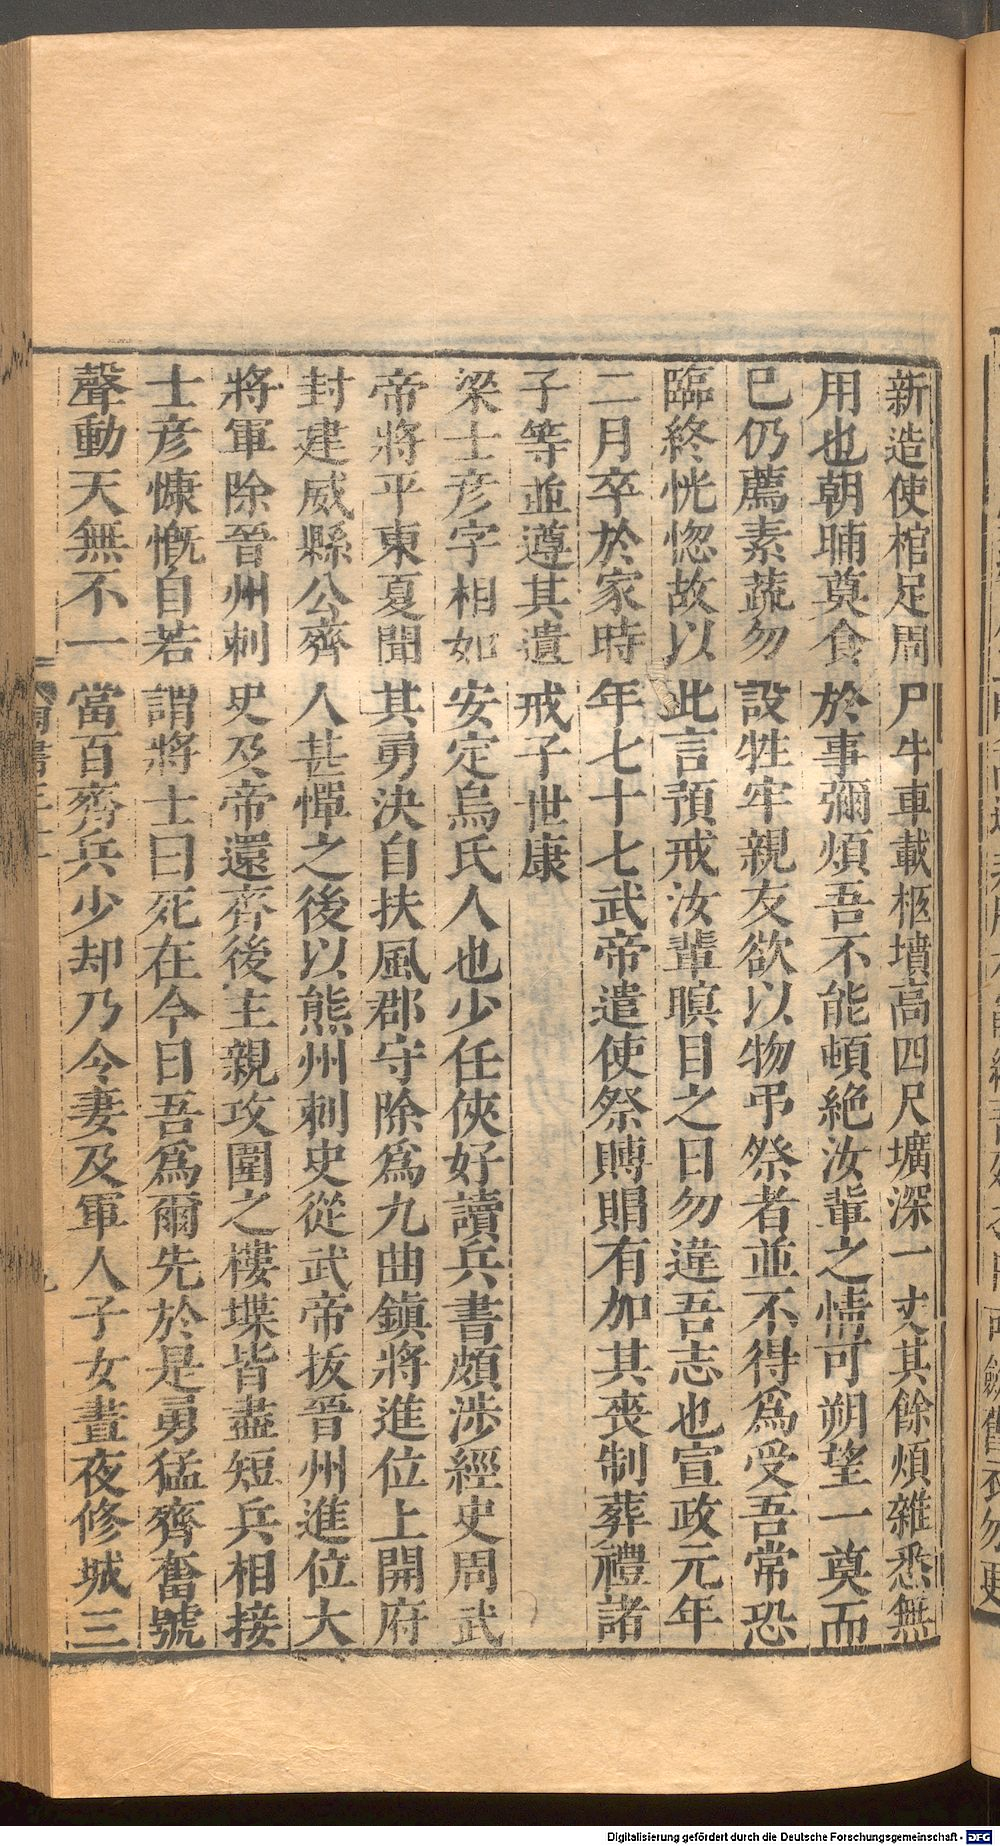 新造使棺足周尸牛車載柩墳高四尺壙深一丈其餘煩雜悉無
用也朝晡奠食於事彌煩吾不能頓絶汝輩之情可朔望一奠而
已仍薦素蔬勿設牲牢親友欲以物弔祭者並不得爲受吾常恐
臨終恍惚故以此言預戒汝輩瞑目之日勿違吾志也宣政元年
二月卒於家時年七十七武帝遣使祭賻賵有加其喪制葬禮諸
子等並遵其遺戒子世康
梁士彦字相如安定烏氏人也少任俠好讀兵書頗涉經史周武
帝將平東夏聞其勇決自扶風郡守除爲九曲鎮將進位上開府
封建威縣公齊人甚憚之後以熊州刺史從武帝拔晉州進位大
將軍除晉州刺史及帝還齊後主親攻圍之樓堞皆盡短兵相接
士彦慷慨自若謂將士曰死在今日吾爲爾先於是勇猛齊奮號
聲動天無不一當百齊兵少却乃令妻及軍人子女晝夜修城三
Digitalisierung gefördert durch die Deutsche Forschungsgemeinschaft - DFG